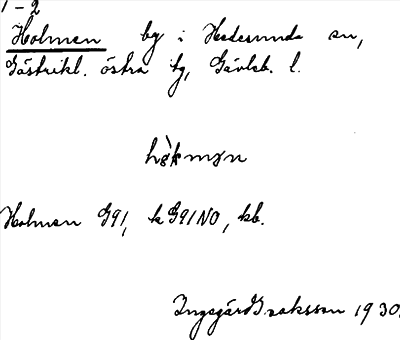 1-2
Holmen by i Hedesunda sn,
Gästrikl. östra tg, Gävleb. l.
Holmen G91, k G91NO, kb.
Ingegärd Isaksson 1930.